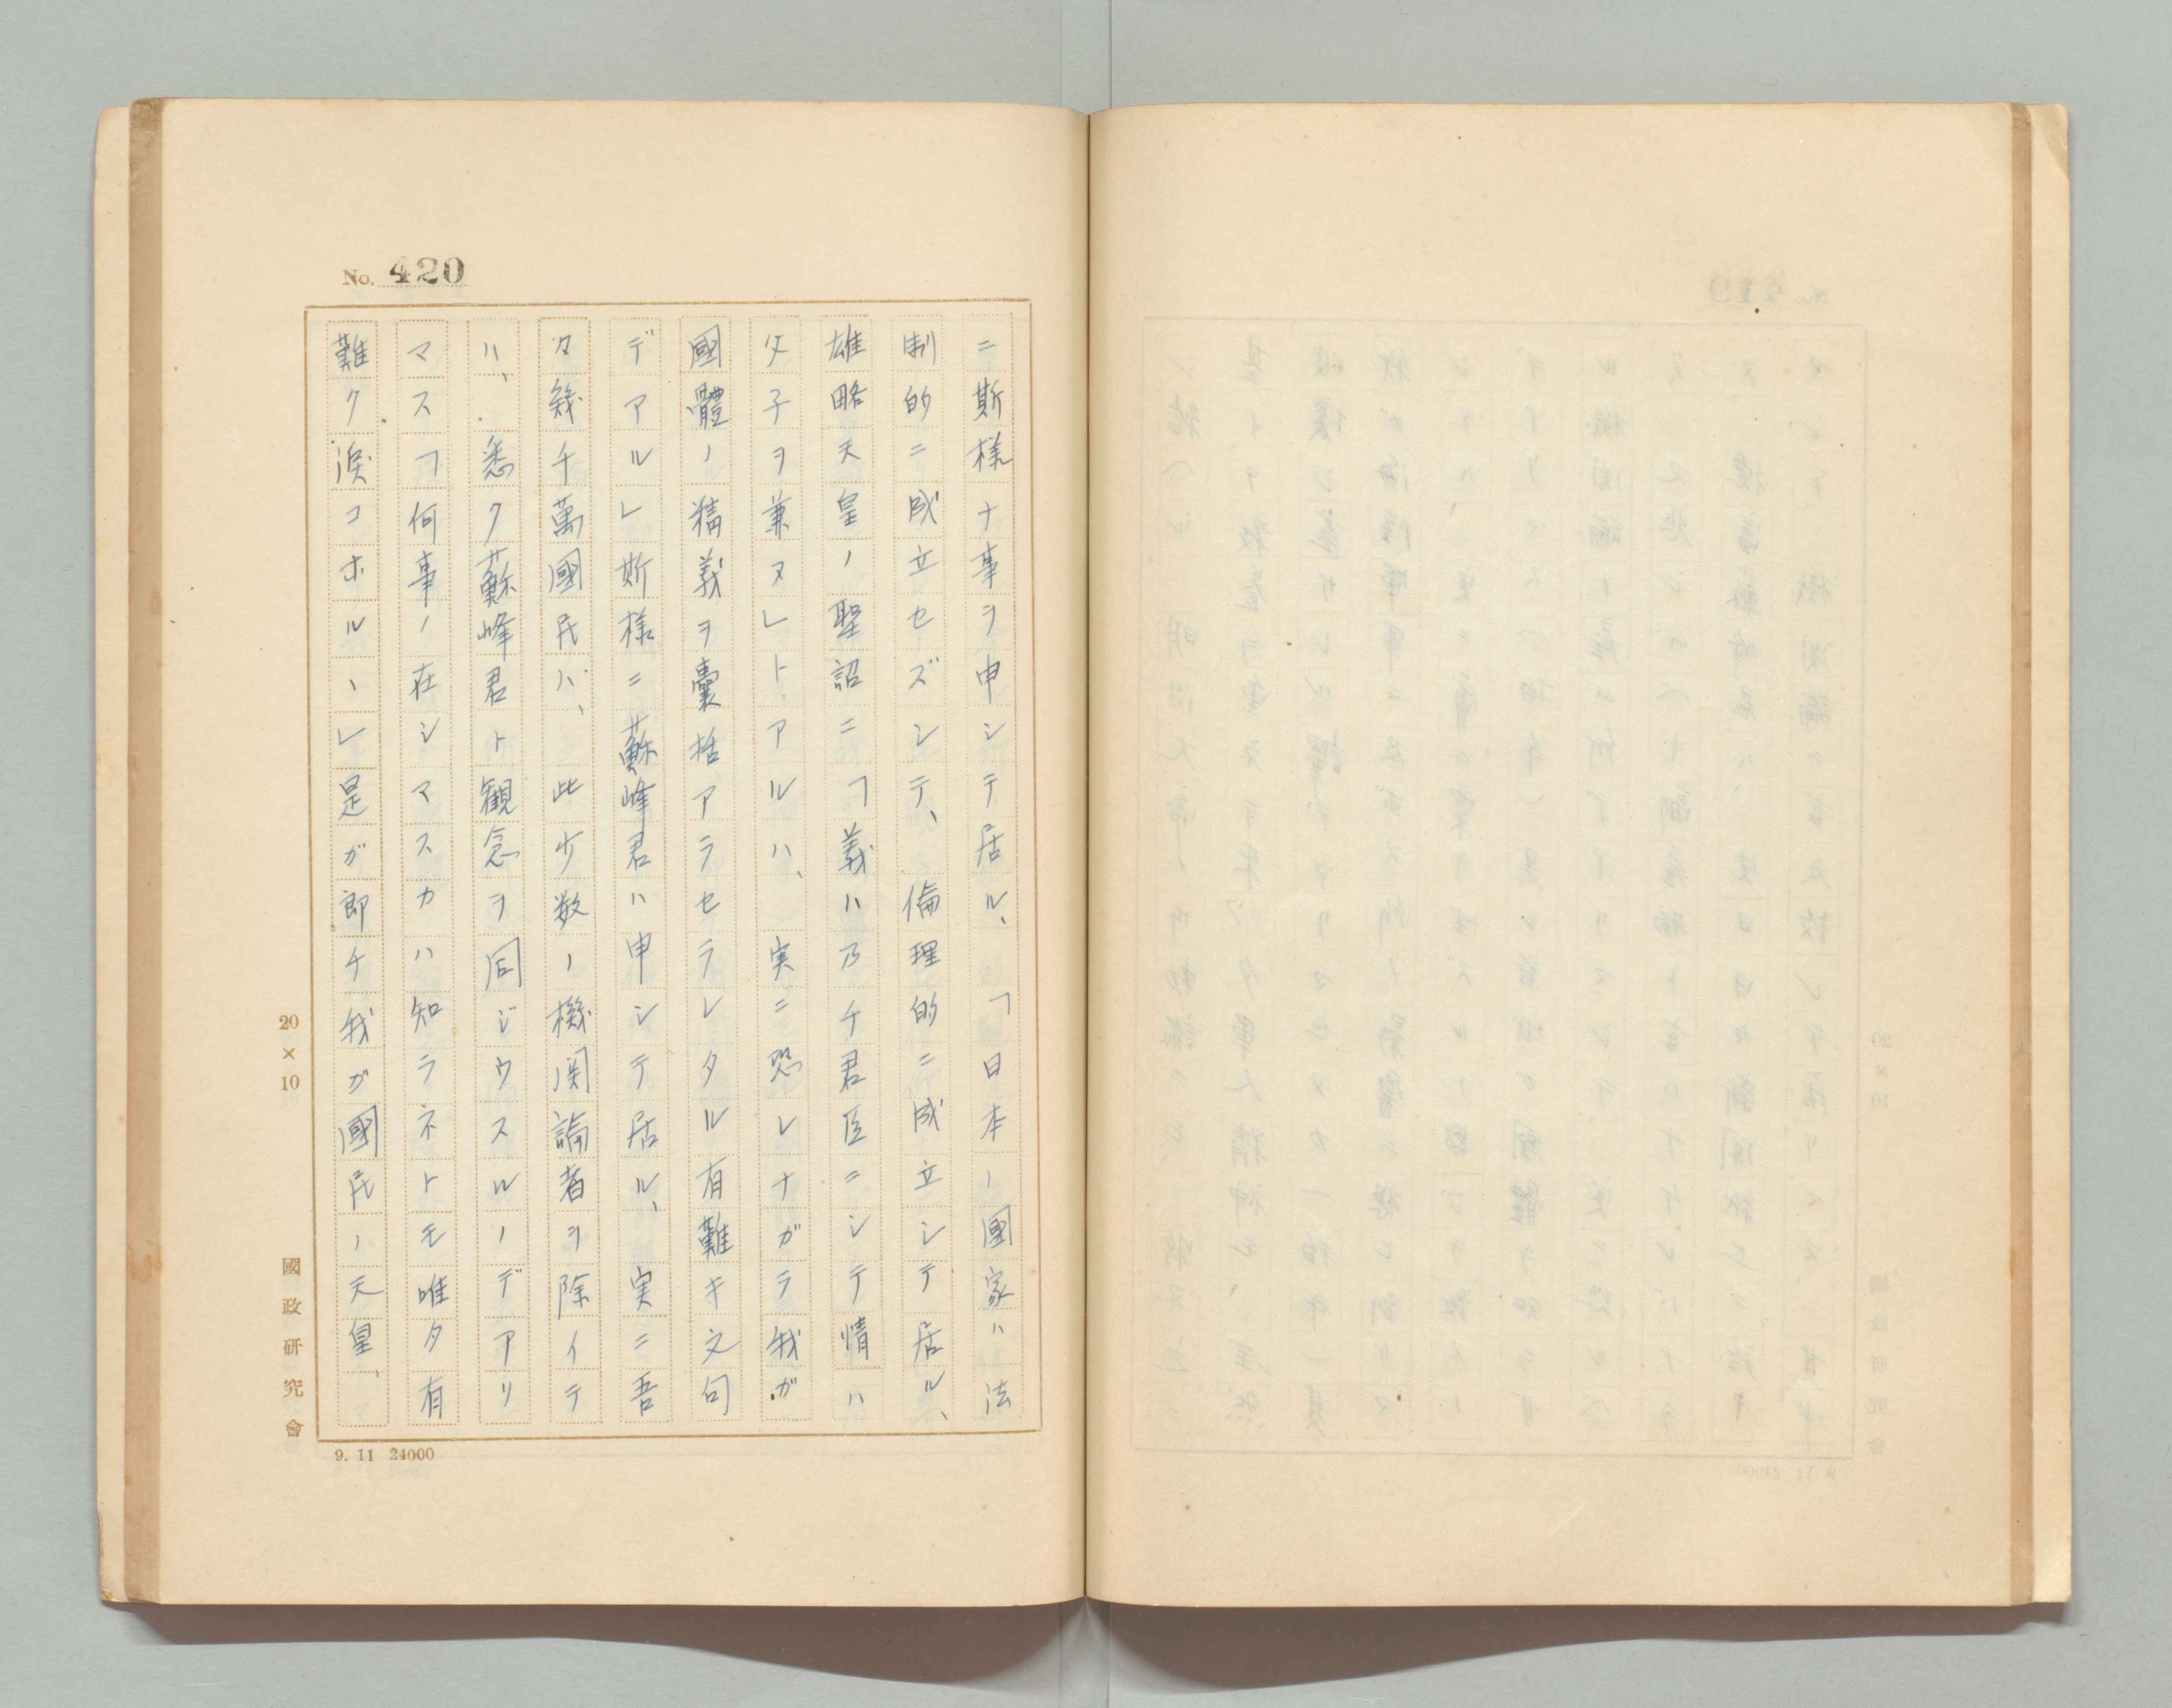 No. 420
ニ斯様ナ事ヲ申シテ居ル、「日本ノ國家ハ法
制的ニ成立セズシテ、倫理的ニ成立シテ居ル、
雄略天皇ノ聖詔ニ「義ハ乃チ君臣ニシテ情ハ
父子ヲ兼ヌ」トアルハ、実ニ恐レナガラ我ガ
國體ノ精義ヲ嚢括アラセラレタル有難キ文句
デアル」斯様ニ蘇峰君ハ申シテ居ル、実ニ吾
々幾千萬國民バ、此少数ノ機関論者ヲ除イテ
ハ、悉ク蘇峰君ト観念ヲ同ジウスルノデアリ
マス「何事ノ在シマスカハ知ラネトモ唯タ有
難ク涙コホルヽ」是ガ即チ我ガ國民ノ天皇、
20×10
國政研究會
9. 11 24000